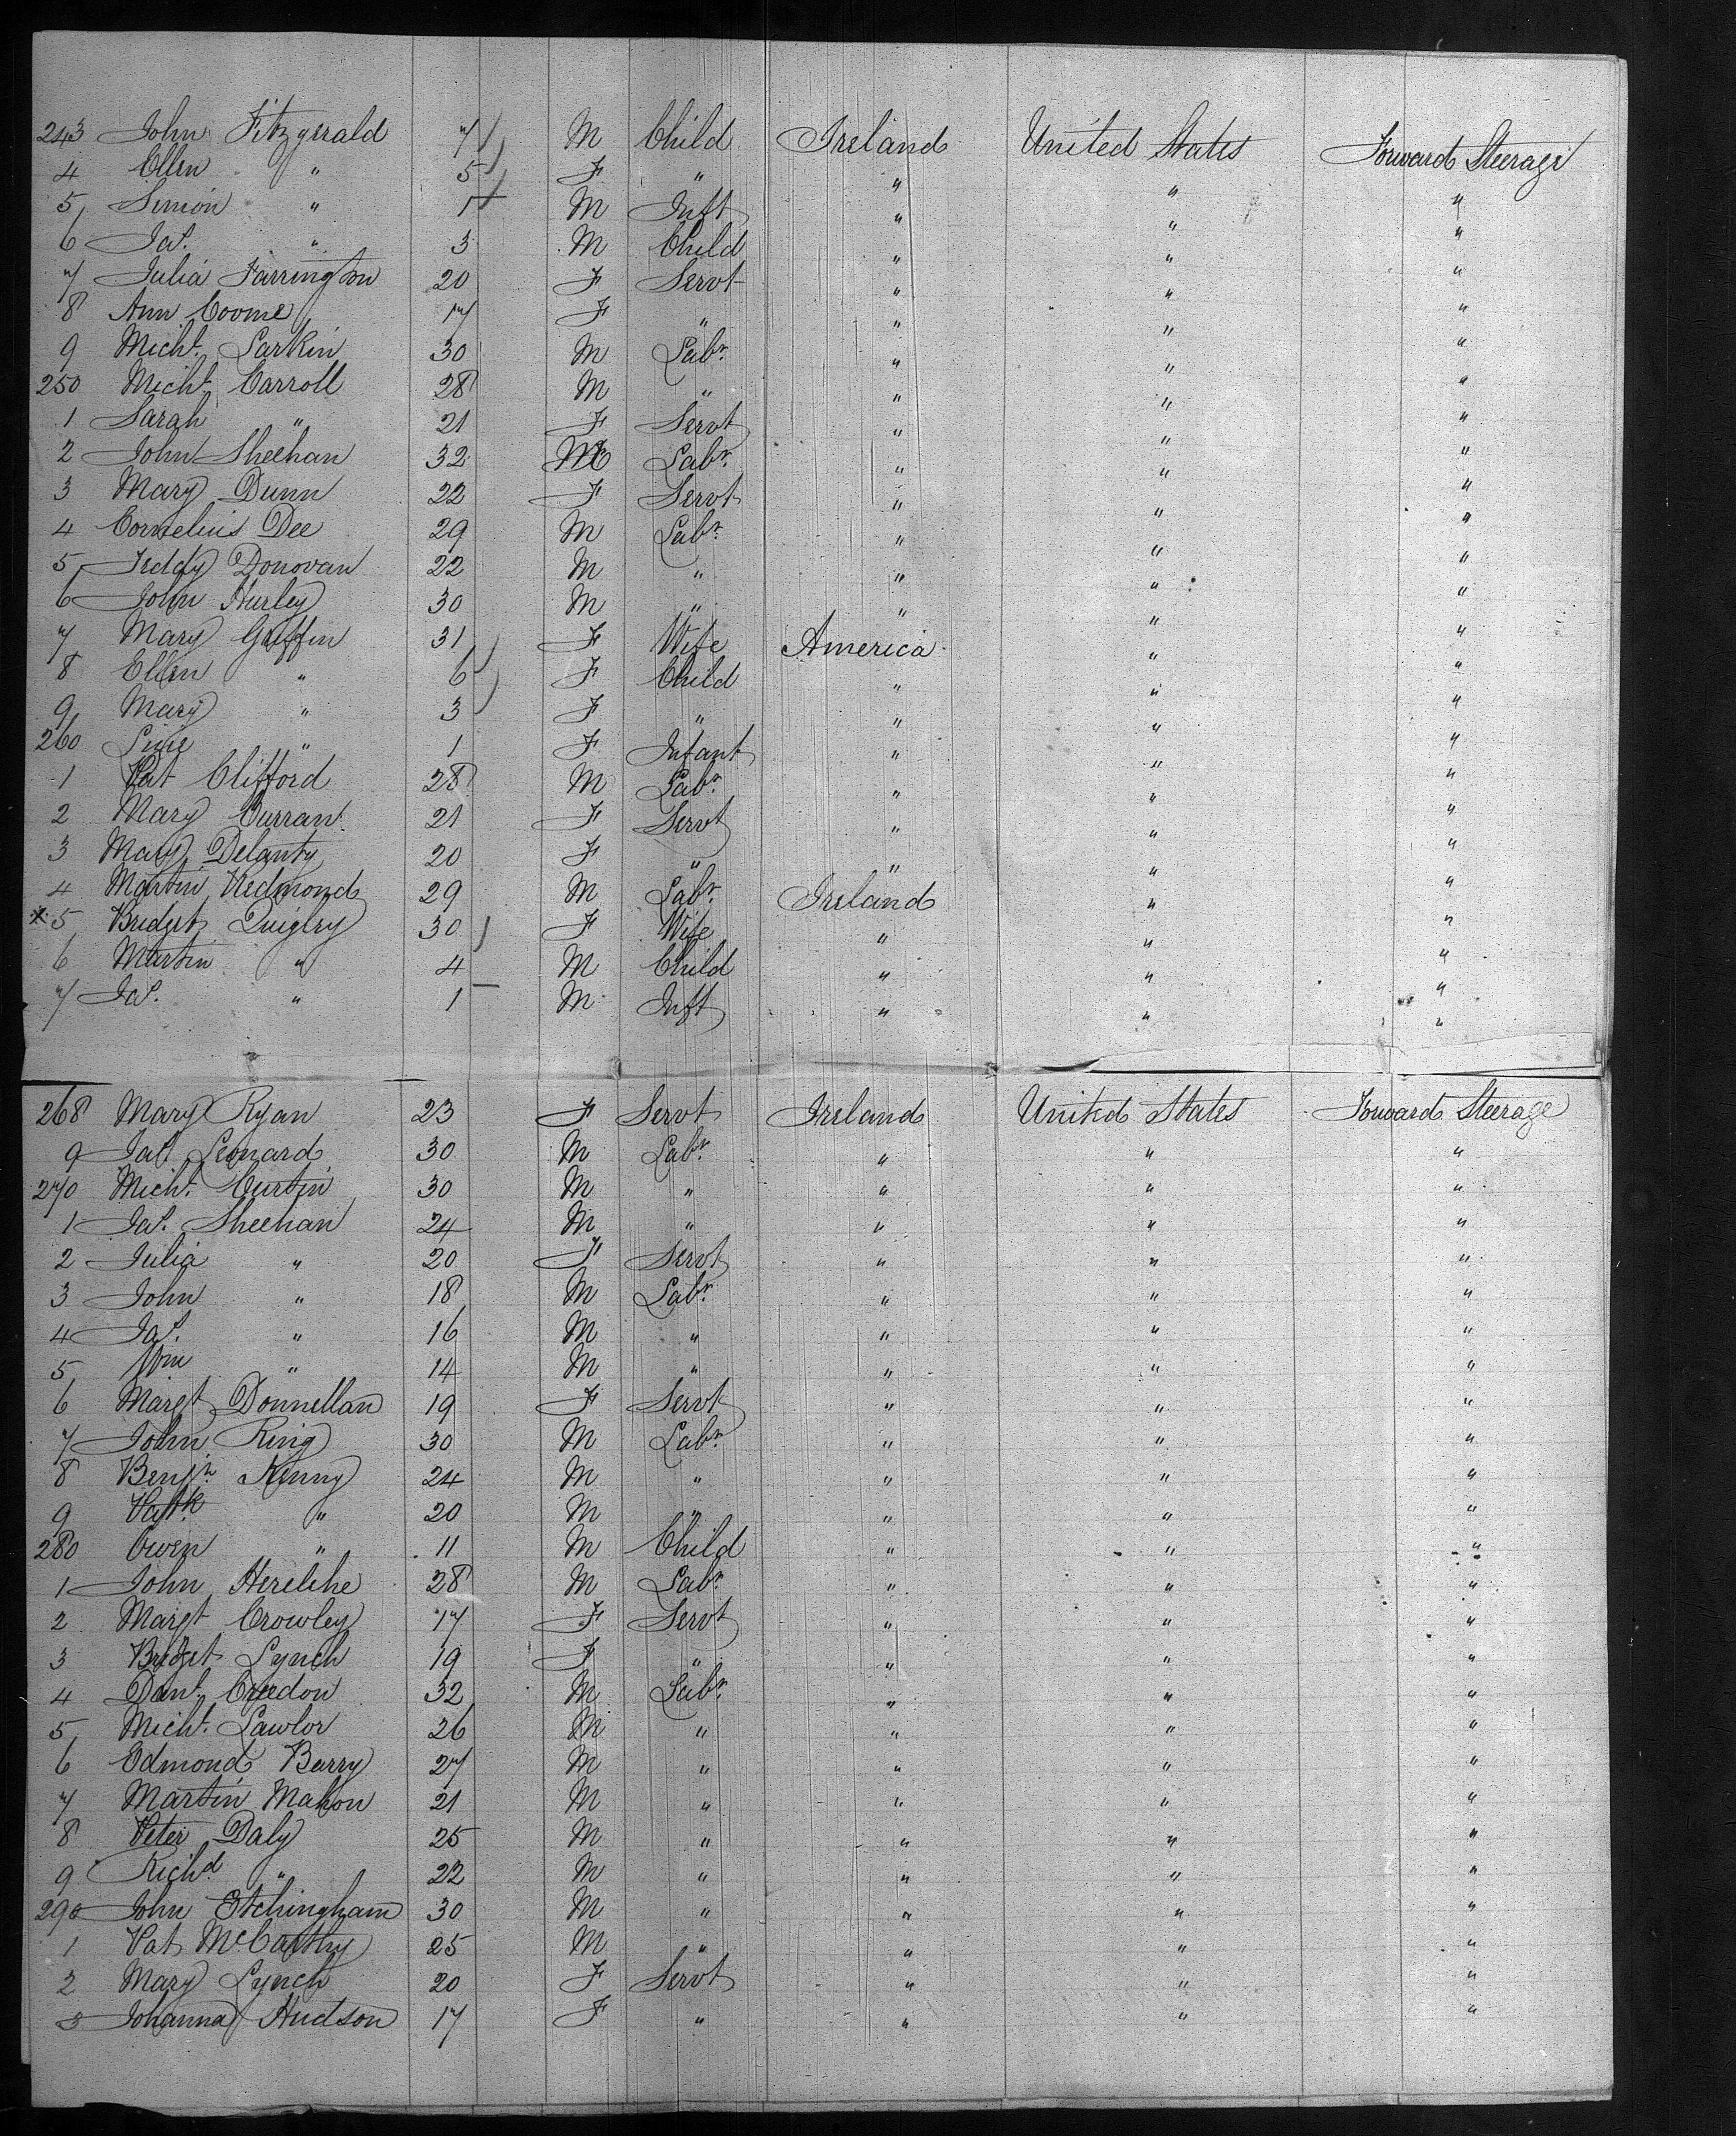 243 John Fitzgerald 7 M Child Ireland United States Forward Steerage
4 Ellen " 5 F " " " "
5 Simon " 1 M Inft " " "
6 Jas. " 3 M Child " " "
7 Julia Farrington 20 F Servt " " "
8 Ann Coome 17 F " " " "
9 Michl. Larkin 30 M Labr. " " "
250 Michl. Carroll 28 M " " " "
1 Sarah " 21 F Servt " " "
2 John Sheehan 32 M Labr. " " "
3 Mary Dunn 22 F Servt " " "
4 Cornelius Dee 29 M Labr. " " "
5 Teddy Donovan 22 M " " " "
6 John Hurley 30 M " " " "
7 Mary Griffin 31 F Wife America " "
8 Ellen " 6 F Child " " "
9 Mary " 3 F " " " "
260 " 1 F Infant " " "
1 Pat Clifford 28 M Labr. " " "
2 Mary Curran 21 F Servt " " "
3 Mary Delanty 20 F " " " "
4 Martin Redmond 29 M Labr. Ireland " "
x 5 Bridget Quigley 30 F Wife " " "
6 Martin " 4 M Child " " "
7 Jas. " 1 M Inft " " "
268 Mary Ryan 23 F Servt Ireland United States Forward Steerage
9 Jas. Leonard 30 M Labr. " " "
270 Michl. Curtin 30 M " " " "
1 Jas. Sheehan 24 M " " " "
2 Julia " 20 F Servt " " "
3 John " 18 M Labr. " " "
4 Jas. " 16 M " " " "
5 Wm " 14 M " " " "
6 Margt Donnellan 19 F Servt " " "
7 John Ring 30 M Labr. " " "
8 Benjn. Kenny 24 M " " " "
9 Patk " 20 M " " " "
280 Owen " 11 M Child " " "
1 John Herlihe 28 M Labr. " " "
2 Margt Crowley 17 F Servt " " "
3 Bridget Lynch 19 F " " " "
4 Danl. Creedon 32 M Labr. " " "
5 Michl. Lawlor 26 M " " " "
6 Edmond Barry 27 M " " " "
7 Martin Mahon 21 M " " " "
8 Peter Daly 25 M " " " "
9 Richd " 22 M " " " "
290 John Etchingham 30 M " " " "
1 Pat McCarthy 25 M " " " "
2 Mary Lynch 20 F Servt " " "
3 Johanna Hudson 17 F " " " "